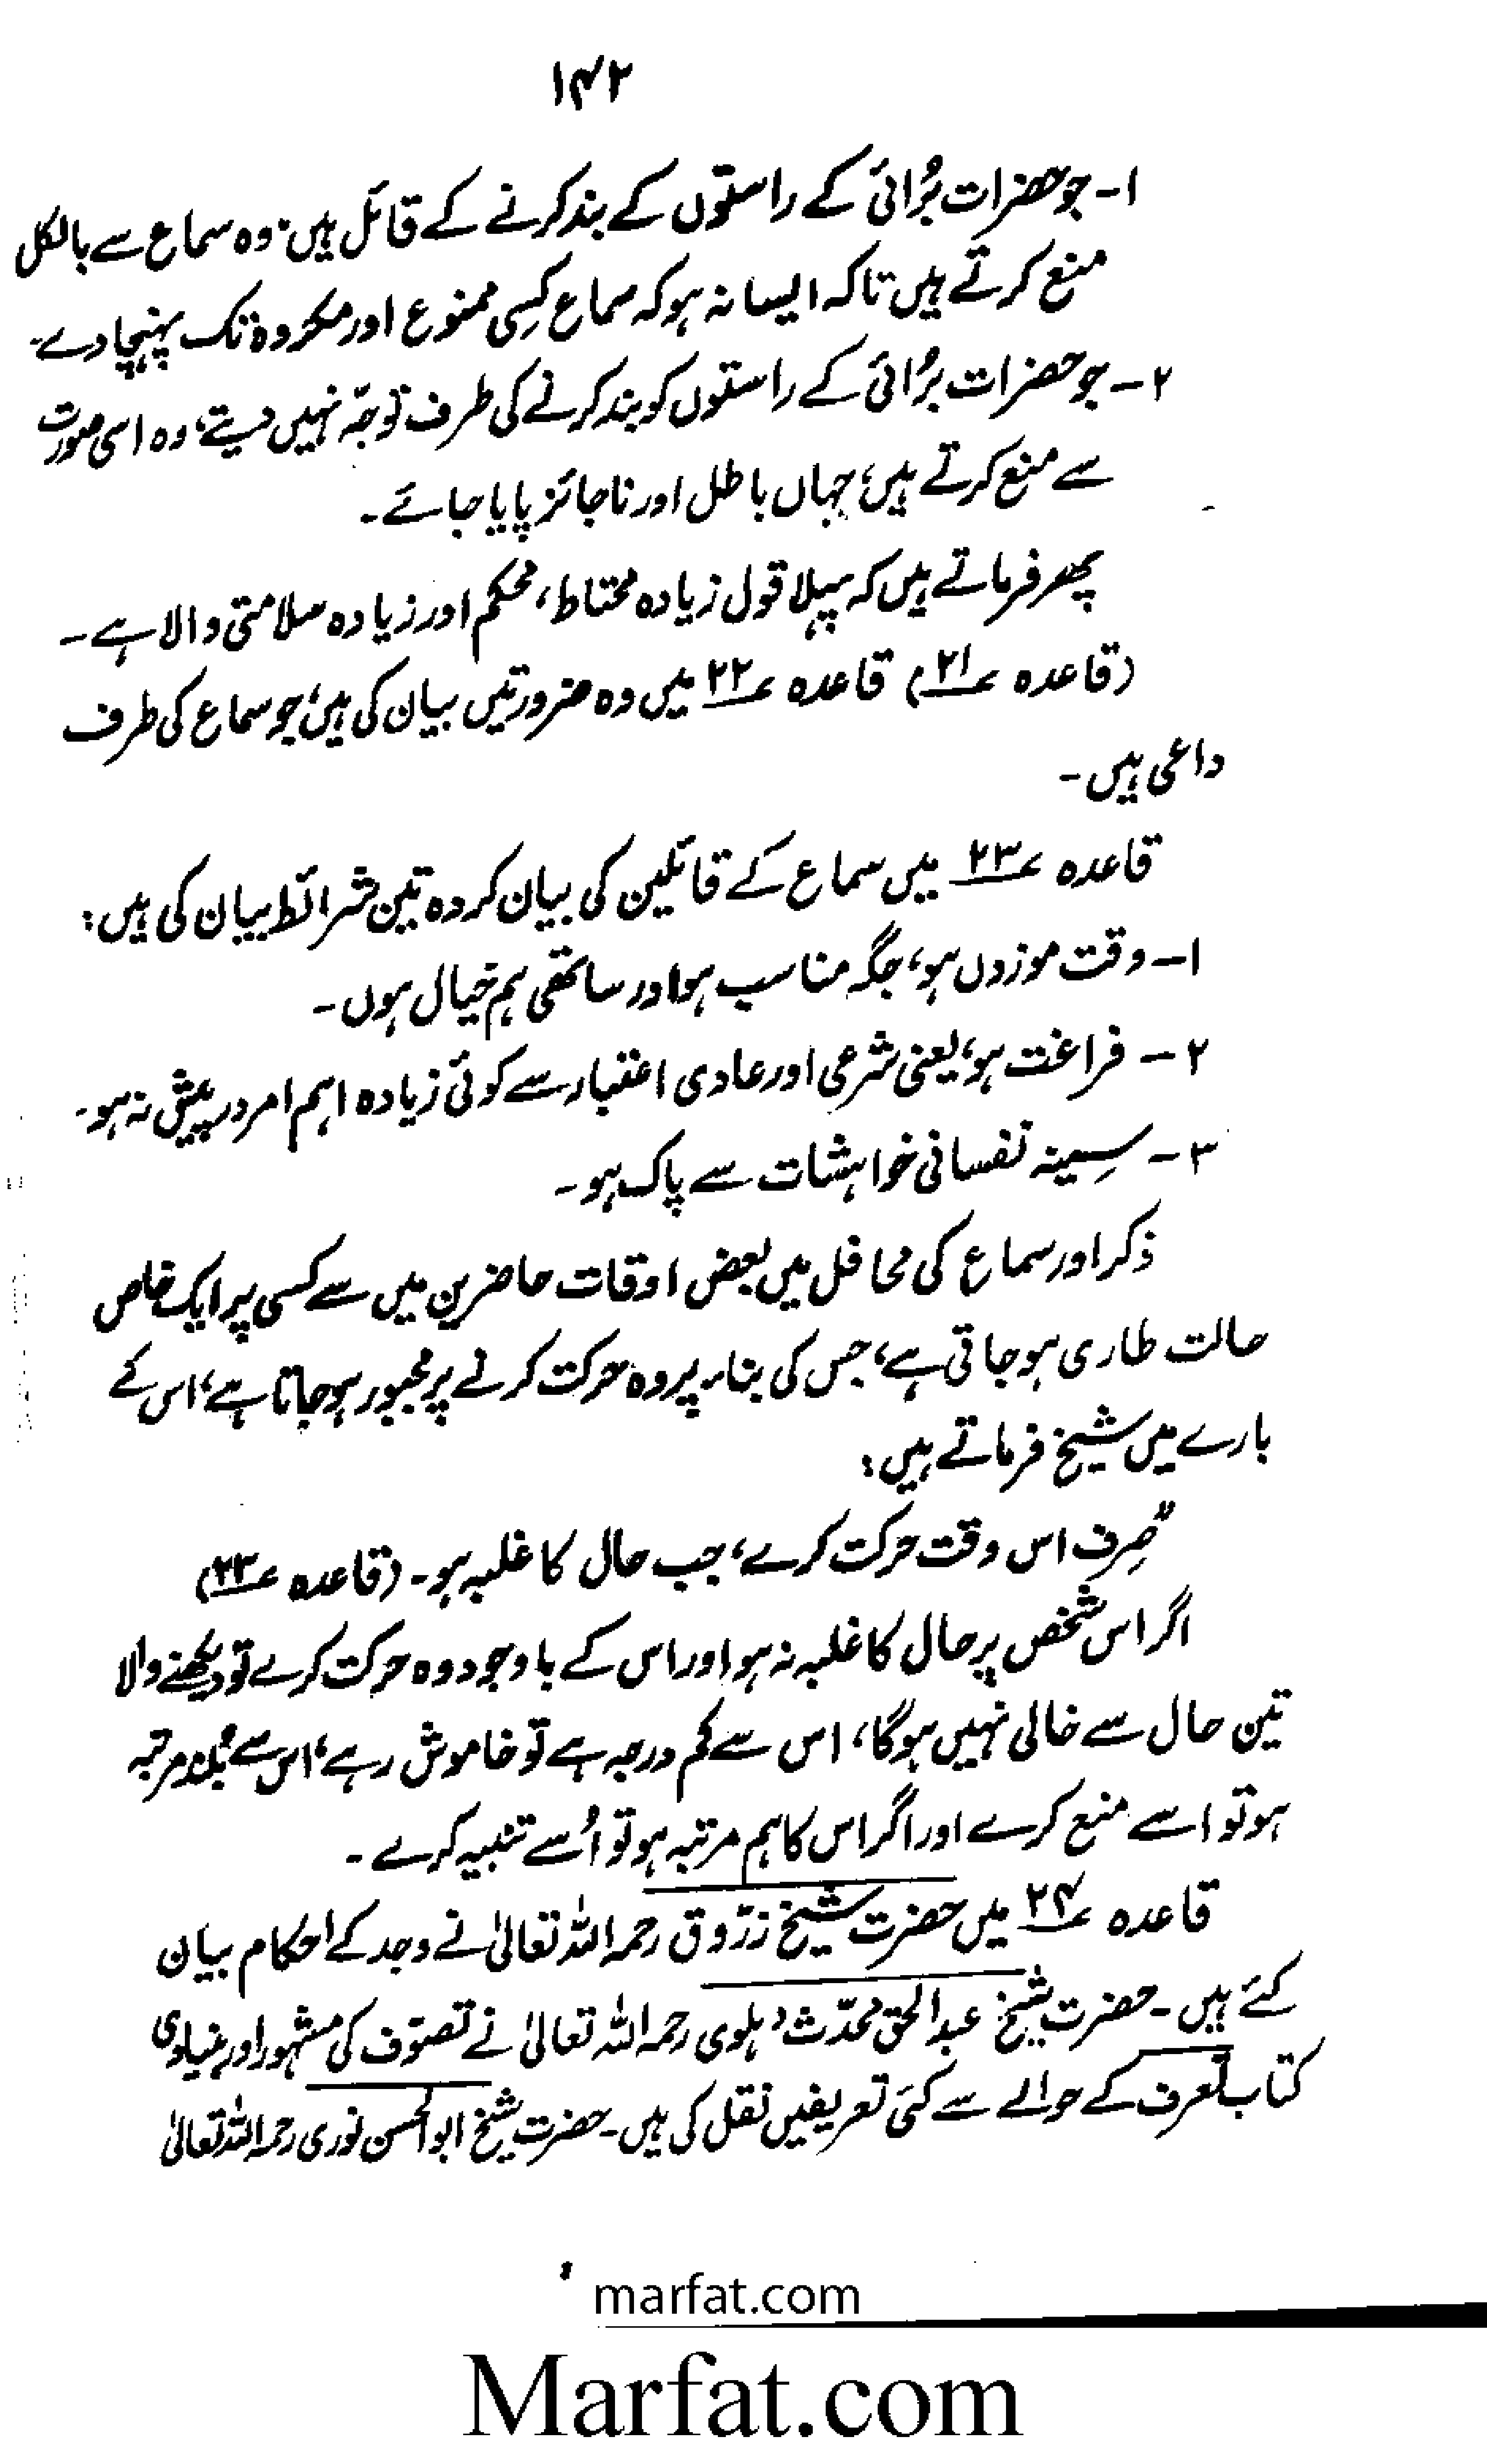 ۱۴۲
۱- جو حضرات بُرائی کے راستوں کے بند کرنے کے قائل ہیں، وہ سماع سے بالکل
منع کرتے ہیں تاکہ ایسا نہ ہو کہ سماع کسِی ممنوع اور مکروہ تک پہنچا دے۔
۲- جو حضرات بُرائی کے راستوں کو بند کرنے کی طرف توجّہ نہیں دیتے، وہ اسی صورت
سے منع کرتے ہیں، جہاں باطل اور ناجائز پایا جائے۔
پھر فرماتے ہیں کہ پہلا قول زیادہ محتاط، محکم اور زیادہ سلامتی والا ہے۔
(قاعدہ ؏۲۱) قاعدہ ؏۲۲ میں وہ ضرورتیں بیان کی ہیں، جو سماع کی طرف
داعی ہیں۔
قاعدہ ؏۲۳ میں سماع کے قائلین کی بیان کردہ تین شرائط بیان کی ہیں:
۱- وقت موزوں ہو، جگہ مناسب ہو اور ساتھی ہم خیال ہوں۔
۲- فراغت ہو، یعنی شرعی اور عادی اعتبار سے کوئی زیادہ اہم امر درپیش نہ ہو۔
۳- سِینہ نفسانی خواہشات سے پاک ہو۔
ذکر اور سماع کی محافل میں بعض اوقات حاضرین میں سے کسی پر ایک خاص
حالت طاری ہو جاتی ہے، جس کی بناء پر وہ حرکت کرنے پر مجبور ہو جاتا ہے، اس کے
بارے میں شیخ فرماتے ہیں:
"صِرف اس وقت حرکت کرے، جب حال کا غلبہ ہو۔ (قاعدہ ؏۲۳)
اگر اس شخص پر حال کا غلبہ نہ ہو اور اس کے باوجود وہ حرکت کرے تو دیکھنے والا
تین حال سے خالی نہیں ہوگا، اس سے کم درجہ ہے تو خاموش رہے، اس سے بُلند مرتبہ
ہو تو اسے منع کرے اور اگر اس کا ہم مرتبہ ہو تو اُسے تنبیہ کرے۔
قاعدہ ؏۲۴ میں حضرت شیخ زرّوق رحمہ اللہ تعالیٰ نے وجد کے احکام بیان
کئے ہیں۔ حضرت شیخ عبدالحق محدّث دہلوی رحمہ اللہ تعالیٰ نے تصوّف کی مشہور اور بنیادی
کتاب تعرف کے حوالے سے کئی تعریفیں نقل کی ہیں۔ حضرت شیخ ابوالحسن نوری رحمہ اللہ تعالیٰ
marfat.com
Marfat.com